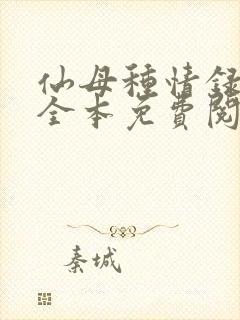 仙母種情録
全本免費閱
秦城